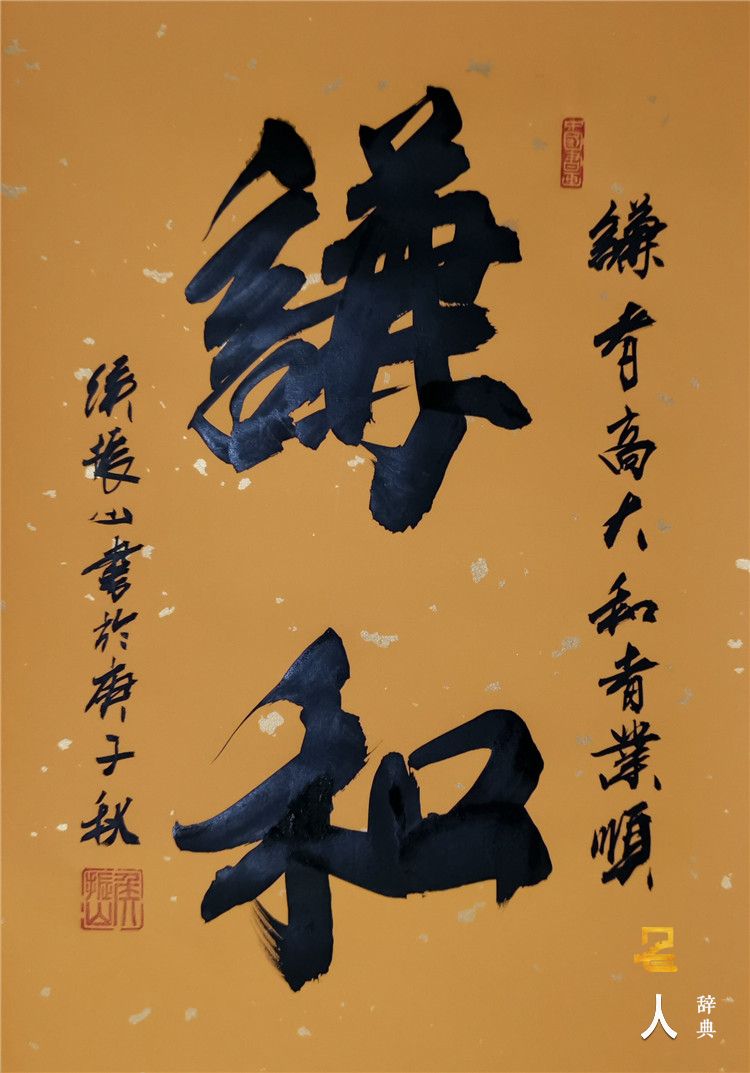 謙者高大和者業順
謙和
侯振山書於庚子秋
侯振山
名人辞典